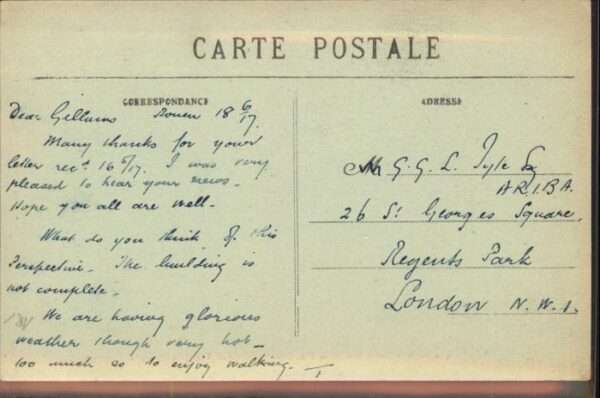 CARTE POSTALE
CORRESPONDANCE
ADRESSE
Dear Gillums Rouen 18 6/17.
Many thanks for your
letter recd. 16/6/17. I was very
pleased to hear your news -
Hope you all are well -
What do you think of this
Perspective - The building is
not complete -
We are having glorious
weather though very hot -
too much so to enjoy walking. -
G. G. L. Tyle Esq
A.R.I.B.A.
26 St Georges Square,
Regents Park
London N.W.1.